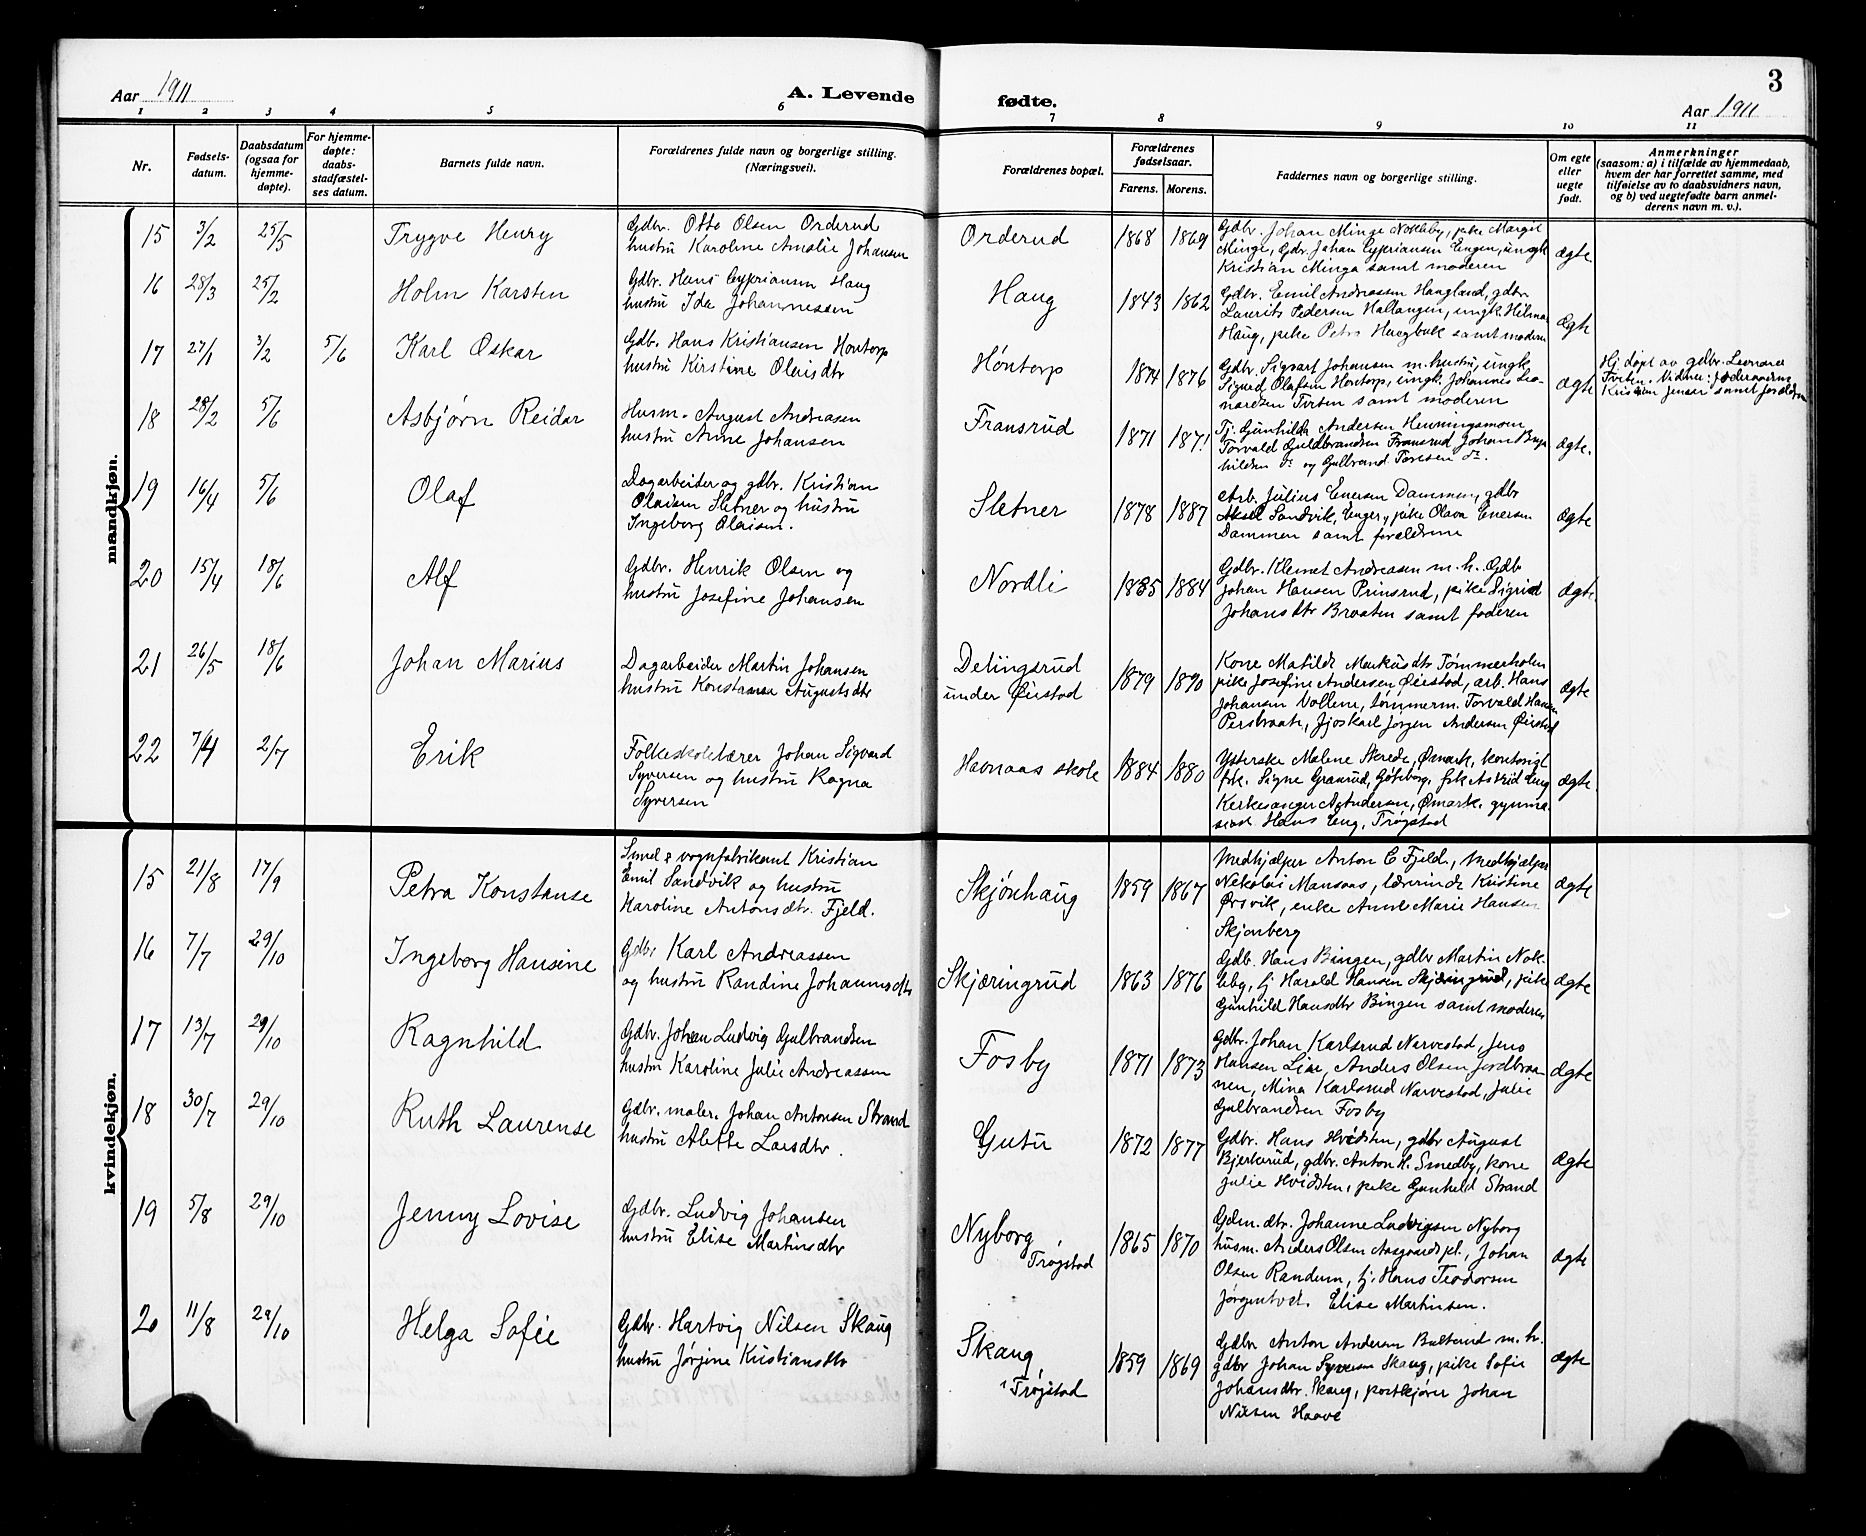 3
Aar 1911
A. Levende
fødte.
Aar 1911
1 2 3 4 5 6 7 8 9 10 11
Nr.
Fødsels-
datum.
Daabsdatum
(ogsaa for
hjemme-
døpte).
For hjemme-
døpte:
daabs-
stadfæstel-
ses datum.
Barnets fulde navn.
Forældrenes fulde navn og borgerlige stilling.
(Næringsvei).
Forældrenes bopæl.
Forældrenes
fødselsaar.
Farens. Morens.
Faddernes navn og borgerlige stilling.
Om egte
eller
uegte
født.
Anmerkninger
(saasom: a) i tilfælde av hjemmedaab,
hvem der har forrettet samme, med
tilføielse av to daabsvidners navn,
og b) ved uegtefødte barn anmel-
derens navn m. v.).
mandkjøn.
15 3/2 25/5 Trygve Henry
Gdbr. Otto Olsen Orderud
hustru Karoline Amalie Johansen
Orderud 1868 1869
Gdbr. Johan Minge Nokleby, pike Margit
Minge, Gdbr. Johan Cypriansen Engen, ungk
Kristian Minge samt moderen
ægte
16 28/3 25/2 Holm Karsten
Gdbr. Hans Cypriansen Haug
hustru Ida Johannessen
Haug 1843 1862
Gdbr. Emil Andreassen Haugland, gdbr
Laurits Pedersen Hallangen, ungk. Hilmar
Haug, pike Petra samt moderen
Ægte
17 27/1 3/2 5/6 Karl Oskar
Gdb. Hans Kristiansen Hontorp
hustru Kirstine Olaisdtr
Høntorp 1874 1876
Gdbr. Sigvart Johansen m. hustru, ungk.
Sigurd Olafsen Hontorp, ungk. Johannes Leo-
nardsen Tviten samt moderen
ægte
Hj. døpt av gdbr. Leonard
Tviten. Vidner:
Kristian Jensen samt forældrene
18 28/2 5/6 Asbjørn Reidar
Husm. August Andreasen
hustru Anne Johansen
Fransrud 1871 1871.
Tj. Gunhilda Andersen Henningsmoen
Torvald Guldbrandsen Fransrud Johan Bryn
hildsen do og Gulbrand Taresen do.
ægte.
19 16/4 5/6 Olaf
Dagarbeider og gdbr. Kristian
Olaisen Sletner og hustru
Ingeborg Olaisen.
Sletner 1878 1887
Arb. Julius Enersen Dammen, gdbr
Aksel Sandvik, Enger, pike Olava Enersen
Dammen samt forældrene
ægte
20 15/4 18/6 Alf
Gdbr. Henrik Olsen og
hustru Josefine Johansen
Nordli 1885 1884
Gdbr. Klemet Andreasen m. h. Gdb
Johan Hansen Prinsrud, pike Sigrid
Johansdtr Braaten samt faderen
ægte
21 26/5 18/6 Johan Marius
Dagarbeider Martin Johansen
hustru Konstanse Augustsdtr
Delingsrud
under Øiestad
1879 1890
Kone Matilde Markusdtr Tømmerholm
pike Josefine Andersen Øiestad, arb. Hans
Johansen Vollene, tømmerm. Torvald Hansen
Persbraate, fjøskarl Jørgen Andersen Øiestad
ægte
22 7/4 2/7 Erik
Folkeskolelærer Johan Sigvard
Syversen og hustru Ragna
Syversen
Havnaas skole 1884 1880
Ysterske Malene Skrede, Ømark, kontorist
frk. Signe Granrud, Gøteborg, frk Astrid Eng
Kirkesanger Andersen, Ømark, gymna-
siast Hans Eng, Trøgstad
ægte
kvindekjøn.
15 21/8 17/9 Petra Konstanse
Smed & vognfabrikant Kristian
Emil Sandvik og hustru
Karoline Antonsdtr. Fjeld.
Skjønhaug 1859 1867
Medhjælper Anton C Fjeld, Medhjælper
Nekolai Mansaas, lærerinde Kristine
Ørsvik, enke Anne Marie Hansen
Skjønberg
ægte
16 7/7 29/10 Ingeborg Hansine
Gdbr Karl Andreassen
og hustru Randine Johannesdtr
Skjæringrud 1863 1876
Gdb. Hans Bingen, gdbr Martin Nok-
leby, tj Harald Hansen Skjæringrud, pike
Gunhild Hansdtr Bingen samt moderen
ægte
17 13/7 29/10 Ragnhild
Gdbr. Johan Ludvig Gulbrandsen
hustru Karoline Julie Andreassen
Fosby 1871 1873
Gdbr. Johan Karlsrud Narvestad, Jens
Hansen Lie, Anders Olsen Jordbraa-
nen, Mina Karlsrud Narvestad, Julie
Gulbrandsen Fosby
ægte
18 30/7 29/10 Ruth Laurense
Gdbr. maler. Johan Antonsen Strand
hustru Alette Larsdtr.
Gutu 1872 1877
Gdbr. Hans Hvidsten, gdbr August
Bjerkerud, gdbr. Anton H. Smedby, kone
Julie Hvidsten, pike Gunhild Strand
ægte
19 5/8 29/10 Jenny Lovise
Gdbr. Ludvig Johansen
hustru Elise Martinsdtr
Nyborg
Trøgstad
1865 1870
Gdm. dtr. Johanne Ludvigsen Nyborg
husm. Anders Olsen Aasgaardspl., Johan
Olsen Randum, tj. Hans Teodorsen
Jørgentvet. Elise Martinsen.
ægte
20 11/8 29/10 Helga Sofie
Gdbr. Hartvig Nilsen Skaug
hustru Jørgine Kristiansdtr
Skaug,
Trøgstad
1859 1869
Gdbr Anton Andersen Bulterud m. h.
gdbr Johan Syversen Skaug, pike Sofie
Johansdtr. Skaug, postkjører Johan
Nilsen Haave
ægte